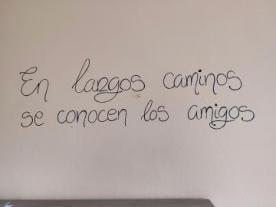 En largos caminos
se conocen los amigos